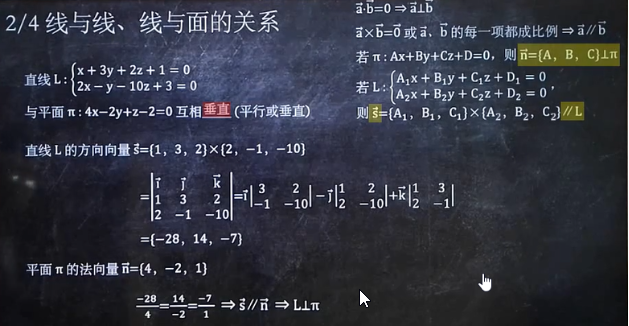 2/4 线与线、线与面的关系
a⃗·b⃗=0 ⇒ a⃗⊥b⃗
a⃗×b⃗=0⃗ 或 a⃗、b⃗ 的每一项都成比例 ⇒ a⃗∥b⃗
若 π: Ax+By+Cz+D=0, 则 n⃗={A, B, C}⊥π
若 L: {A₁x + B₁y + C₁z + D₁ = 0
A₂x + B₂y + C₂z + D₂ = 0 ,
则 s⃗={A₁, B₁, C₁}×{A₂, B₂, C₂}∥L
直线 L: {x + 3y + 2z + 1 = 0
2x − y − 10z + 3 = 0
与平面 π: 4x−2y+z−2=0 互相 垂直 (平行或垂直)
直线 L 的方向向量 s⃗={1, 3, 2}×{2, −1, −10}
=|i⃗ j⃗ k⃗|=i⃗|3 2|−j⃗|1 2|+k⃗|1 3|
|1 3 2| |−1 −10| |2 −10| |2 −1|
|2 −1 −10|
={−28, 14, −7}
平面 π 的法向量 n⃗={4, −2, 1}
−28/4=14/−2=−7/1 ⇒ s⃗∥n⃗ ⇒ L⊥π